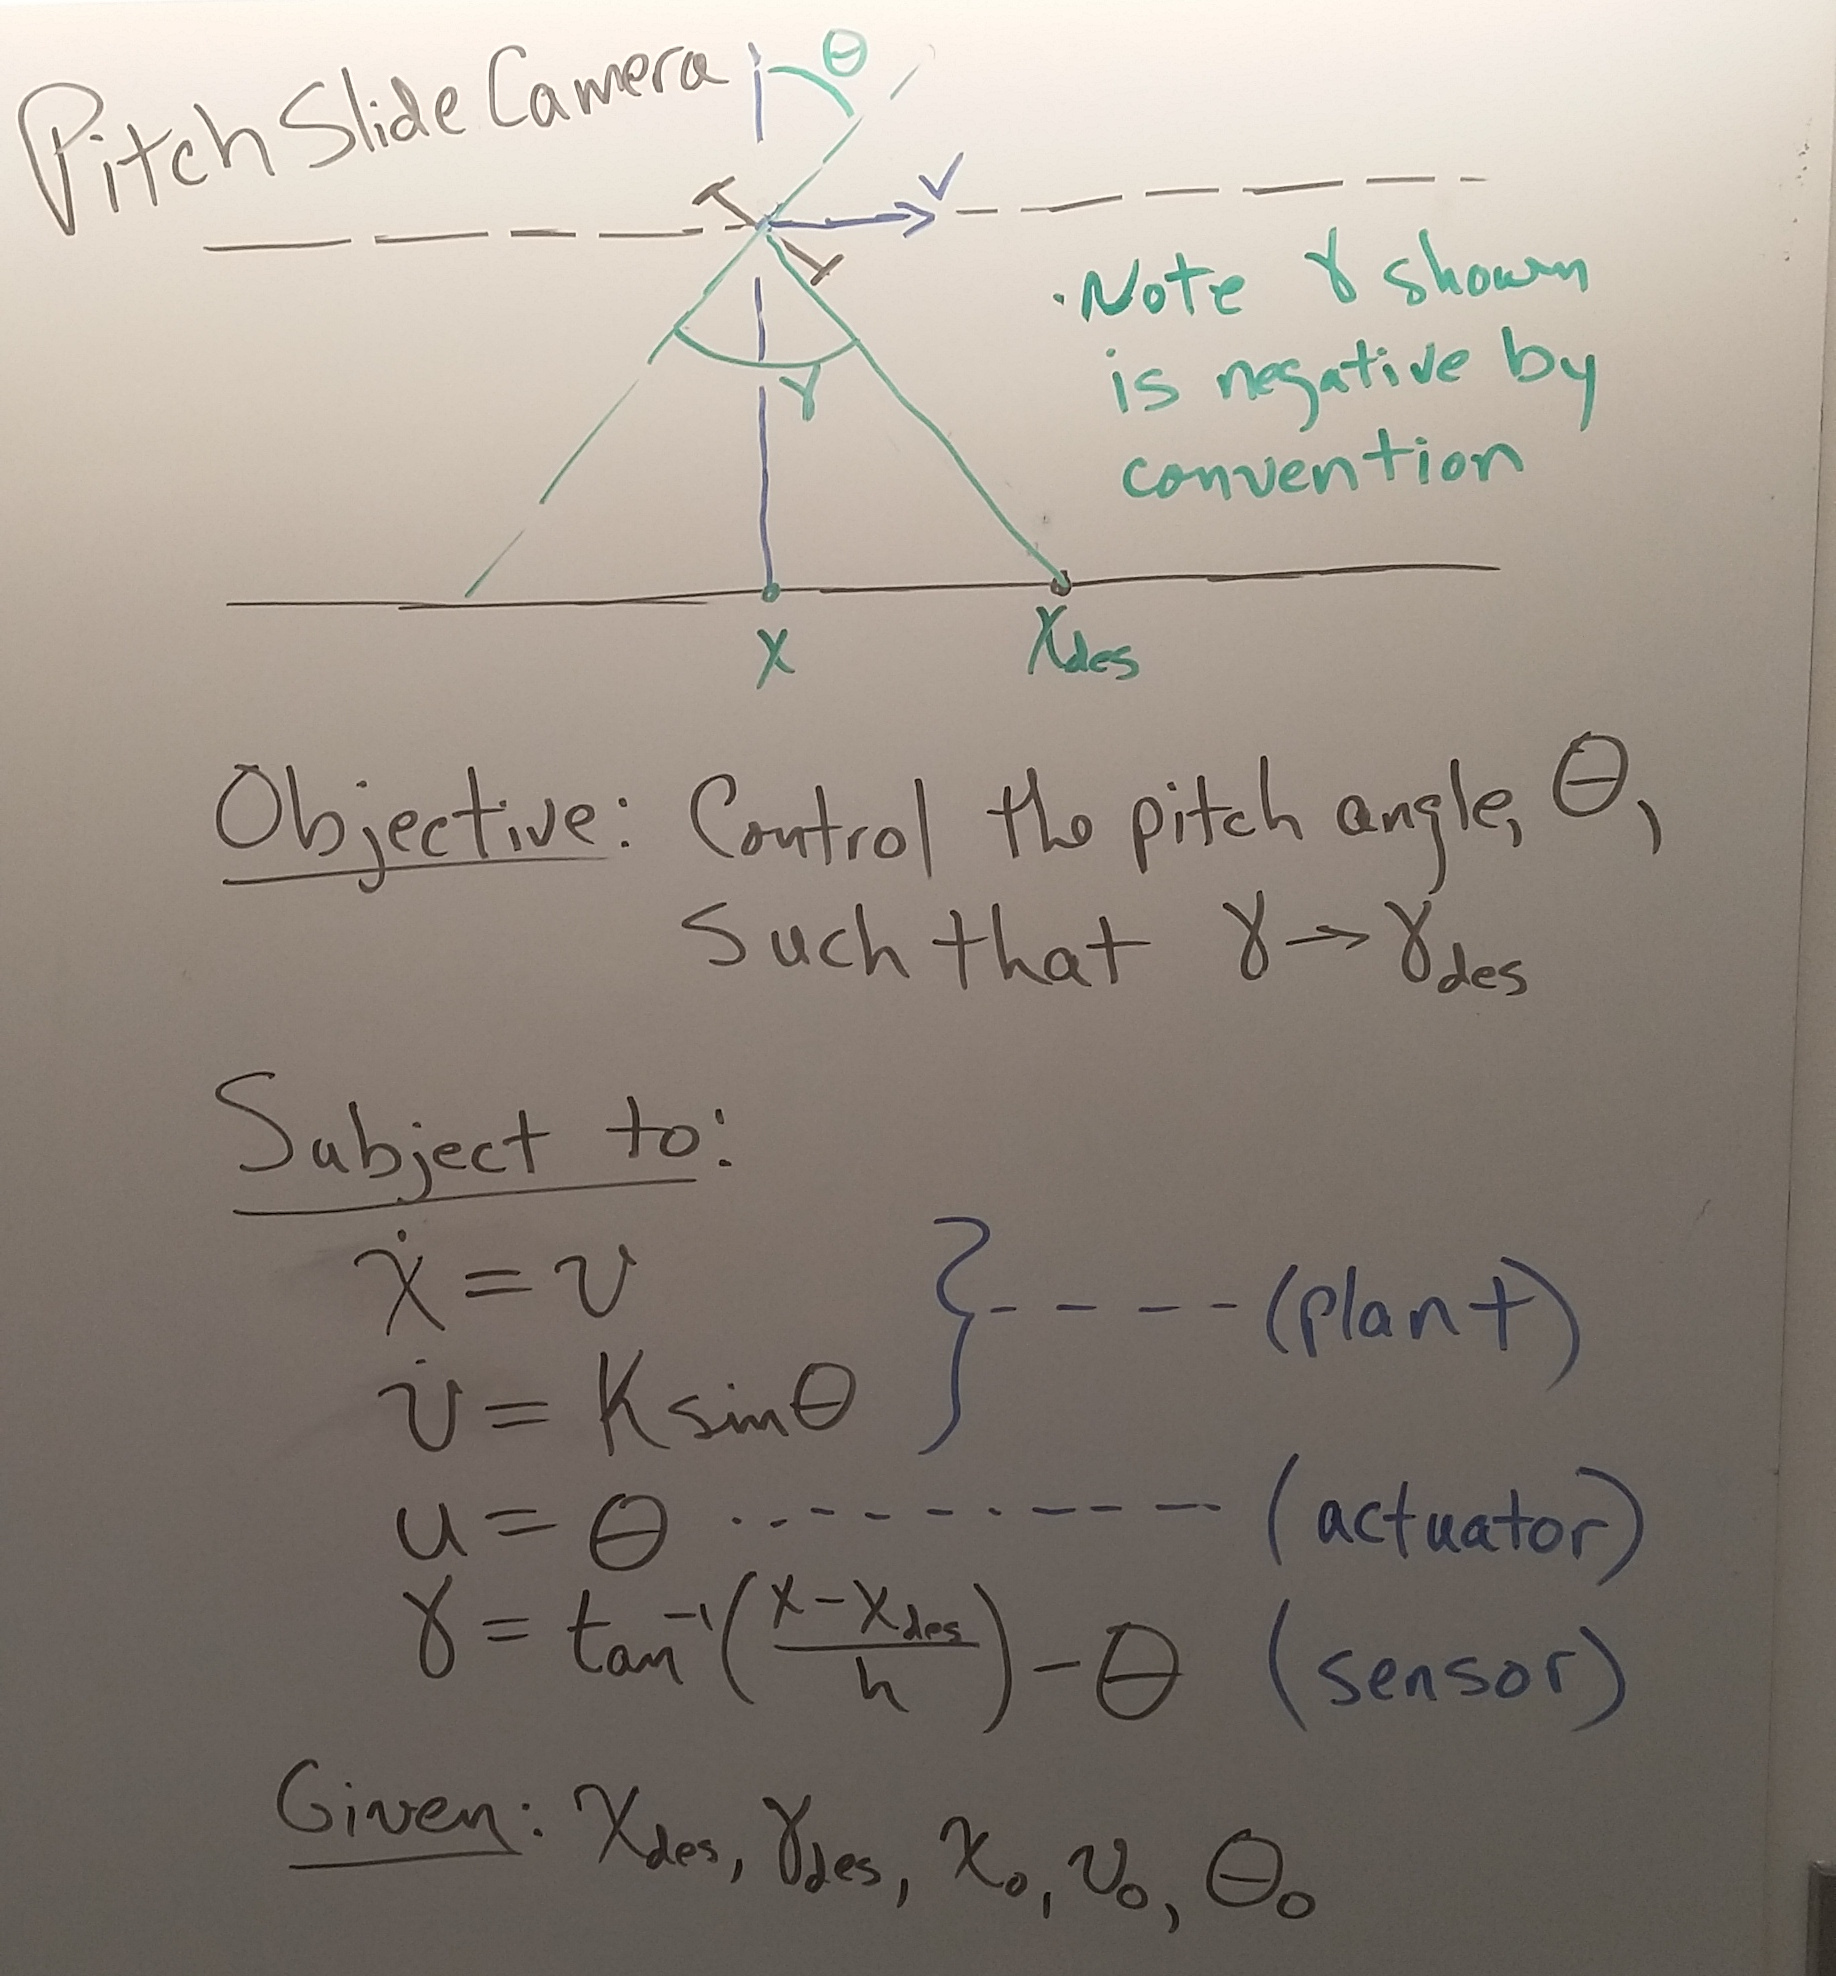 Pitch Slide Camera
θ
v
γ
· Note γ shown
is negative by
convention
x
x_des
Objective: Control the pitch angle, θ,
Such that γ → γ_des
Subject to:
ẋ = v
v̇ = K sinθ
(plant)
u = θ (actuator)
γ = tan⁻¹((x - x_des)/h) - θ (sensor)
Given: x_des, γ_des, x₀, v₀, θ₀